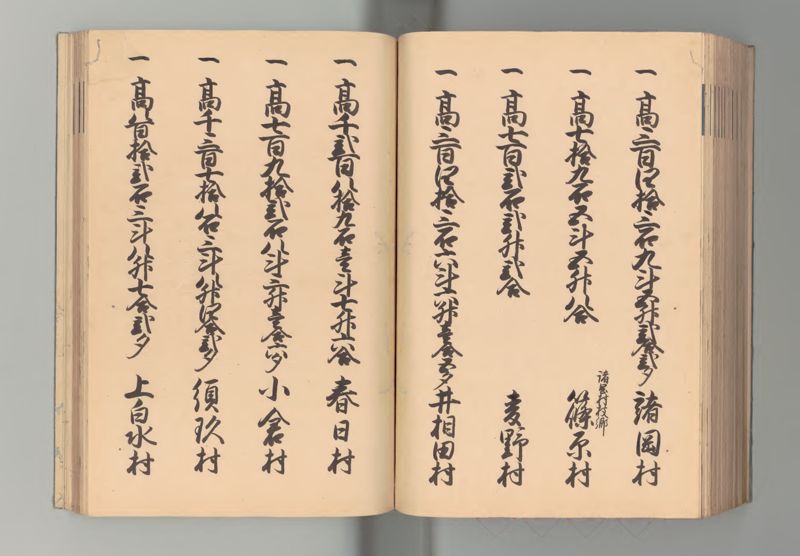 一 髙三百四拾三石九斗五升弐合弐夕 諸岡村
一 髙七拾九石五斗五升八合 諸岡村枝郷 篠原村
一 髙七百弐石弐升弐合 麦野村
一 髙三百四拾三石六斗八升壱合五夕 井相田村
一 髙千弐百八拾九石壱斗七升六合 春日村
一 髙七百九拾弐石八斗三升壱合六夕 小倉村
一 髙千三百七拾八石三斗八升四合弐夕 須玖村
一 髙八百拾弐石三斗八升七合弐夕 上白水村